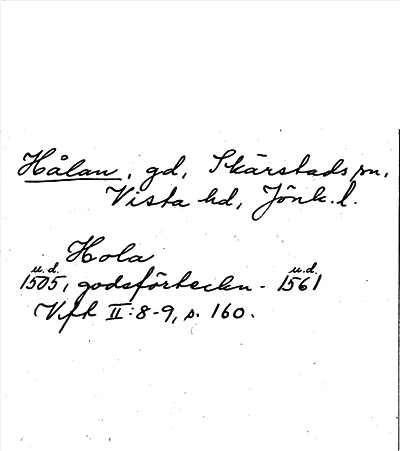 Hålan, gd, Skärstads sn,
Vista hd, Jönk. l.
Hola
u.d. u.d.
1505, godsförteckn. - 1561
Vft II:8-9, s. 160.